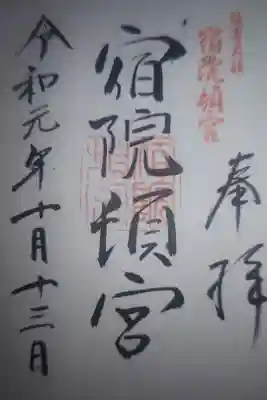 奉拝
宿院頓宮
宿院頓宮
令和元年十月十三日